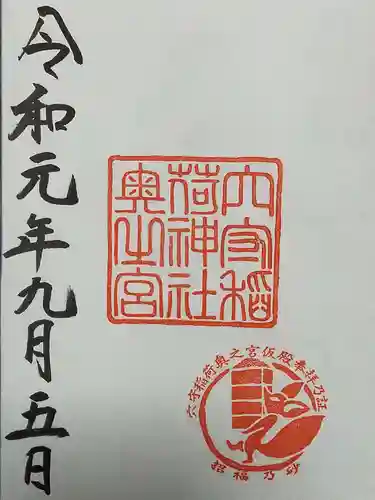 令和元年九月五日
穴守稲
荷神社
奥之宮
穴守稲荷奥之宮仮殿奉拝乃証
招福乃砂